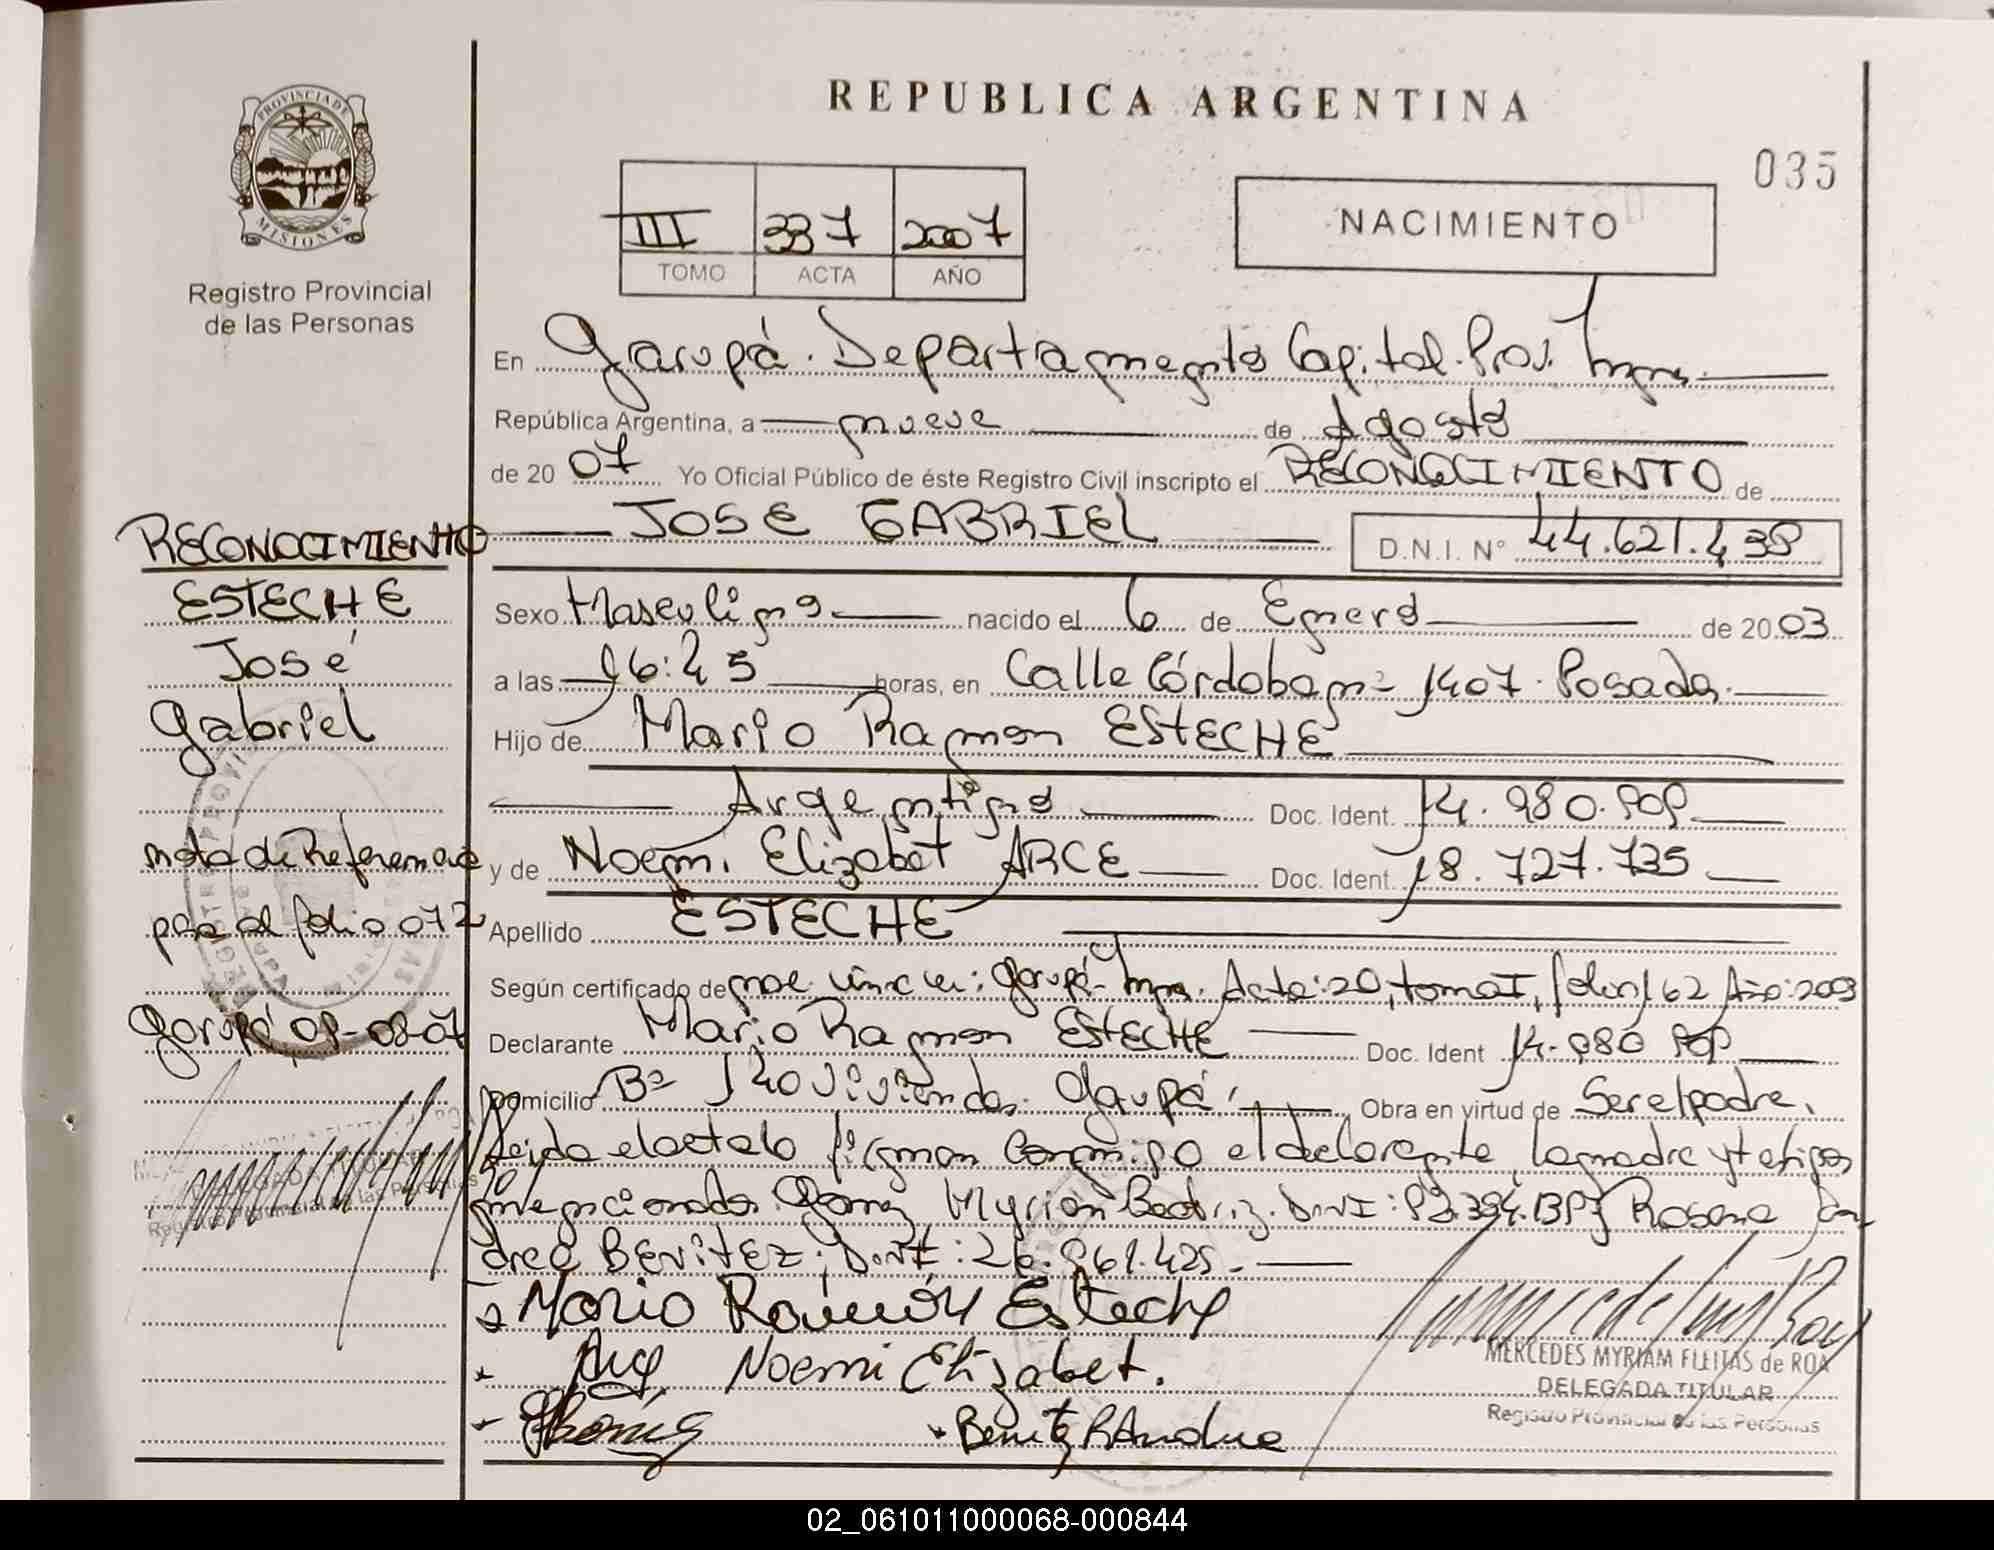 PROVINCIA DE
MISIONES
Registro Provincial
de las Personas
REPUBLICA ARGENTINA
035
III 337 2007
TOMO ACTA AÑO
NACIMIENTO
En Garupá. Departamento Capital. Prov. Mnes.
República Argentina, a nueve de Agosto
de 20 07 Yo Oficial Público de éste Registro Civil inscripto el RECONOCIMIENTO de
JOSE GABRIEL D.N.I. N° 44.621.438
Sexo Masculino nacido el 6 de Enero de 20 03
a las 16:45 horas, en Calle Córdoba nº 1407. Posadas
Hijo de Mario Ramon ESTECHE
Argentino Doc. Ident.
y de Noemi Elizabet ARCE Doc. Ident. 18.727.735
Apellido ESTECHE
Según certificado de Garupá Mnes. Acta:20, tomo I, folio 162 Año:2003
Declarante Mario Ramon ESTECHE Doc. Ident
Domicilio Bº 140 Viviendas. Garupá Obra en virtud de Ser el padre.
Leida el acta lo firman conmigo el declarante, la madre y testigos
mencionados Myrian Beatriz. D.N.I: Rosana An
drea BENITEZ; D.N.I:
Mario Ramón Esteche
Arce Noemi Elizabet.
Benitez R Andrea
MERCEDES MYRIAM FLEITAS de ROA
DELEGADA TITULAR
Registro Provincial de las Personas
RECONOCIMIENTO
ESTECHE
José
Gabriel
nota de Referencia
pasa al folio 072
Garupá 09-08-07
02_061011000068-000844